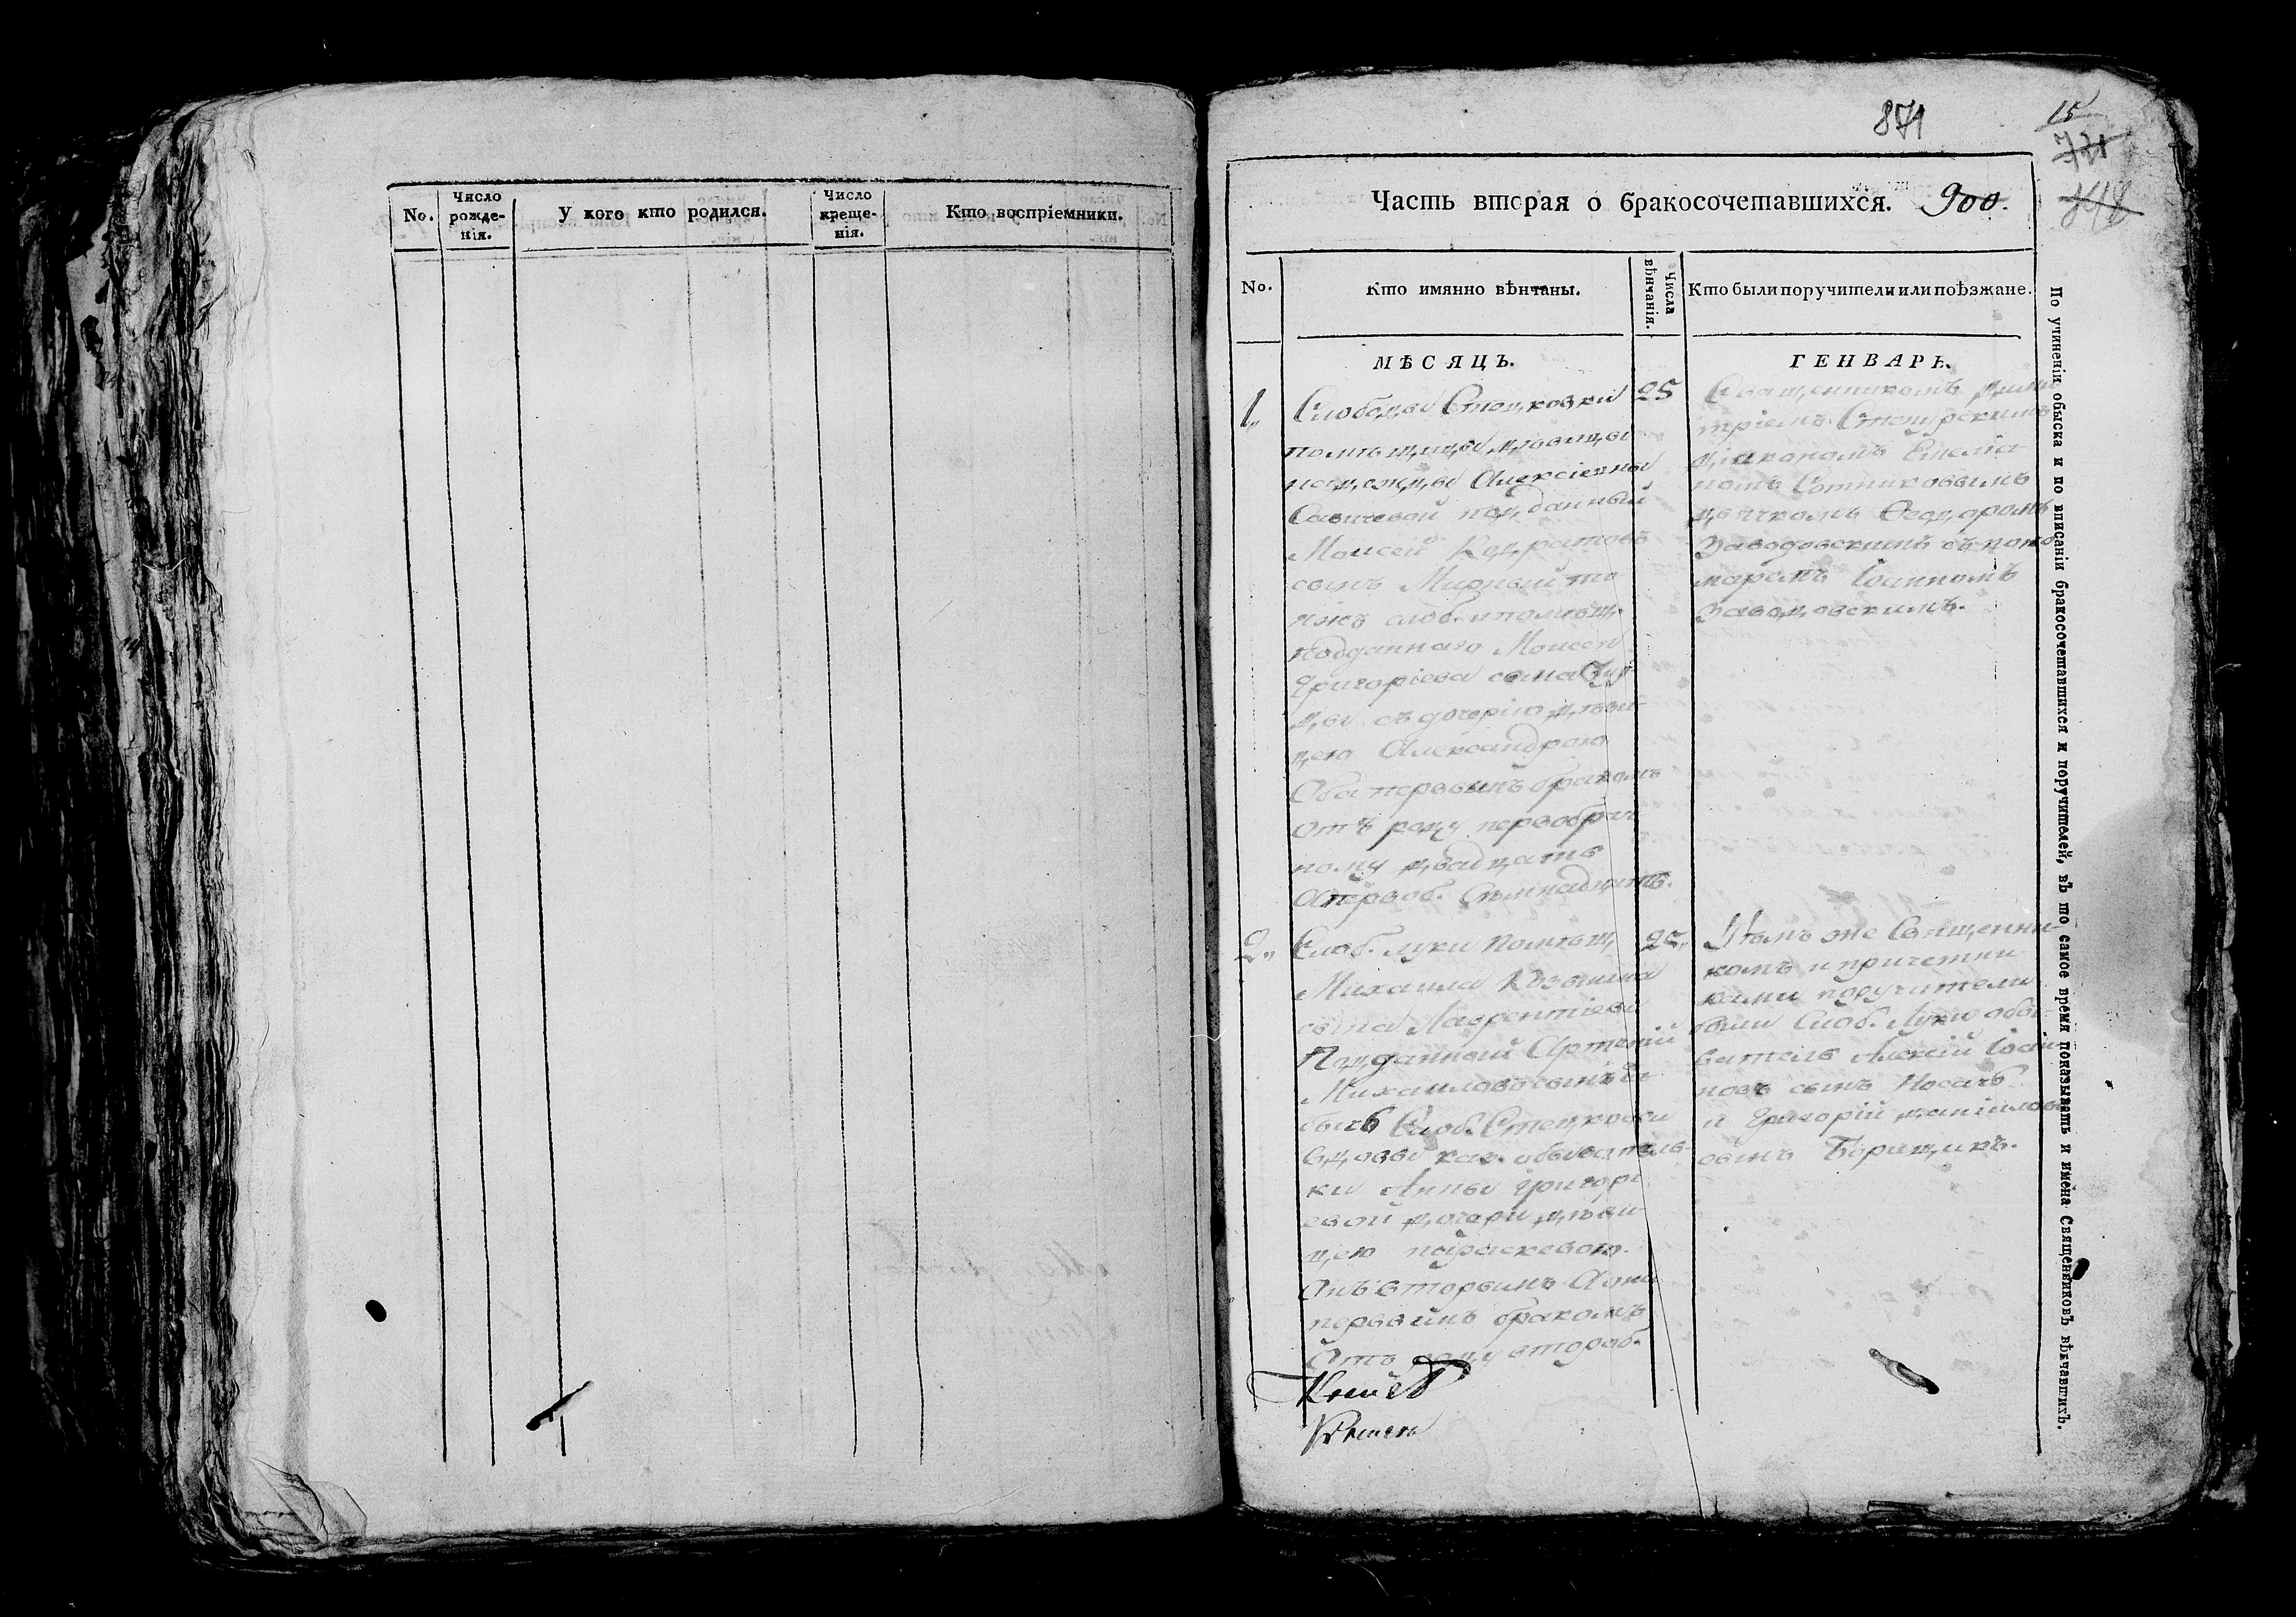 No.
Число рожде-нія.
У кого кто родился.
Число креще-нія.
Кто воспріемники.
871
15
721
848
Часть вторая о бракосочетавшихся. 900.
No.
Кто имянно вѣнчаны.
Числа вѣнчанія.
Кто были поручители или поѣзжане.
МѢСЯЦЪ.
ГЕНВАРЬ.
1.
Слободы Стецковки
помѣщицы дѣвицы
надежды Алексіевны
Савичевой подданный
Моисей Кодратовъ
сынъ Мирный то
яжъ слоб. и помѣщ.
подданнаго Моисея
Григоріева сына
ды съ дочерію дѣви-
цею Александрою
Оба первымъ бракомъ
отъ роду первобрач
ному двадцать
первоб. Семнадцать.
25
Священникомъ Дими
тріемъ
діакономъ Емеліа
номъ Сотниковымъ
дьячкомъ Ѳеодоромъ
Заводовскимъ съ поно
маремъ Іоанномъ
Заводовскимъ.
2.
Слоб. луки помѣщ.
Михаила Козьмина
сына Лаврентіева
Подданный Артемій
Михаиловъ сынъ
Слоб. Стецковки
вдовы каз. обывательь
ки Анны Григорі
евой дочери дѣви-
цею параскевою.
Онъ вторымъ а она
первымъ бракомъ
Отъ роду второб.
25.
Тѣмъ же Священни-
комъ и причетни
ками поручители
были Слоб. Луки обы-
ватель Алексій Іоан
новъ сынъ Носачь
и Григорій Даніиловъ
сынъ Борищикъ.
По учиненіи обыска и по вписаніи бракосочетавшихся и поручителей, въ то самое время показывать и имена Священниковъ вѣнчавшихъ.